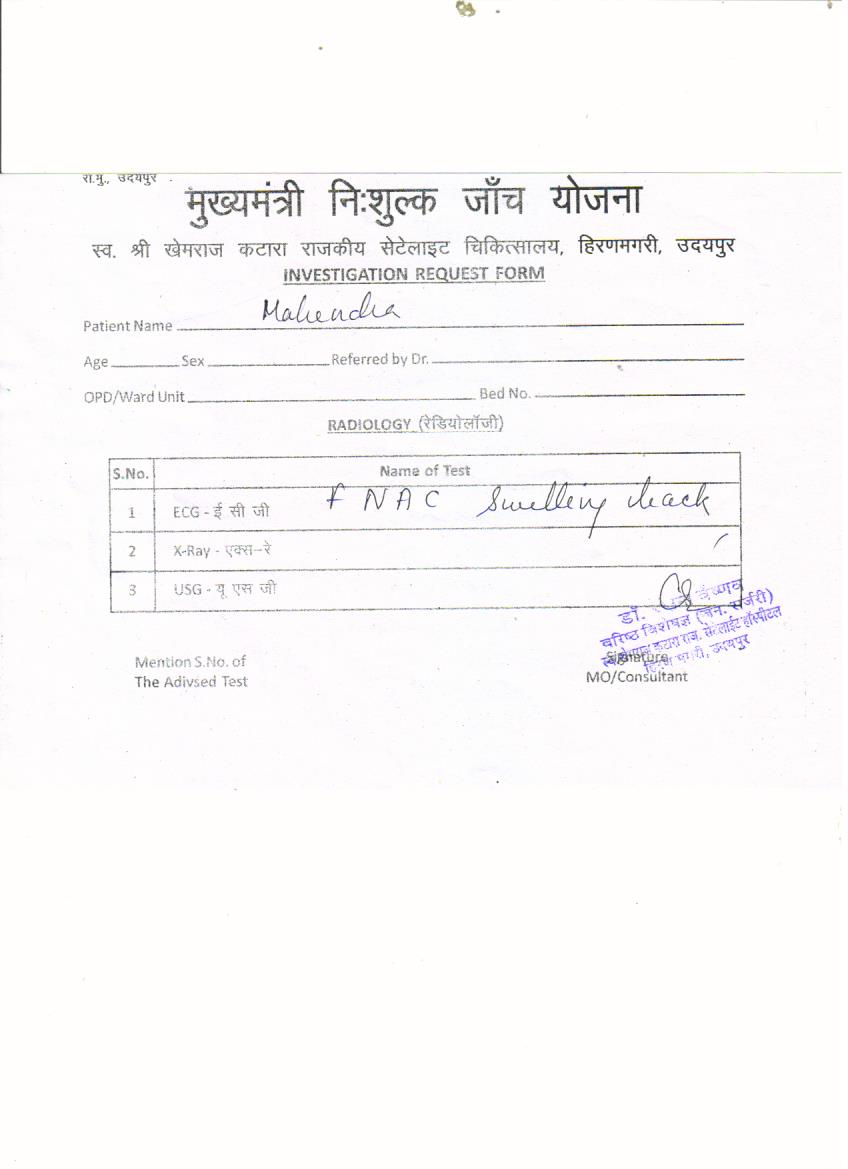 रा.मु., उदयपुर
मुख्यमंत्री निःशुल्क जाँच योजना
स्व. श्री खेमराज कटारा राजकीय सेटेलाइट चिकित्सालय, हिरणमगरी, उदयपुर
INVESTIGATION REQUEST FORM
Patient Name Mahendra
Age Sex Referred by Dr.
OPD/Ward Unit Bed No.
RADIOLOGY (रेडियोलॉजी)
S.No. Name of Test
1 ECG - ई सी जी F N A C Swelling
2 X-Ray - एक्स-रे
3 USG - यू एस जी
डॉ. वैष्णव
वरिष्ठ विशेषज्ञ (जन. सर्जरी)
कटारा राज. सेटेलाईट हॉस्पीटल
उदयपुर
Mention S.No. of Signature
The Adivsed Test MO/Consultant